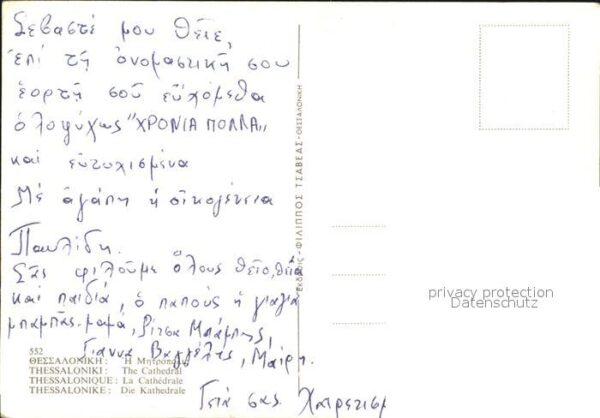 Σεβαστέ μου Θεῖε,
ἐπί τῇ ὀνομαστικῇ σου
ἑορτῇ σοῦ εὐχόμεθα
ὁλοψύχως "ΧΡΟΝΙΑ ΠΟΛΛΑ"
καί εὐτυχισμένα
Μέ ἀγάπη ἡ οἰκογένεια
Παυλίδη.
Σᾶς φιλοῦμε ὅλους θεῖο, θεία
καί παιδιά, ὁ παπούς ἡ γιαγιά
μπαμπᾶς. μαμά, Ρίτσα Μπάμπης,
Γιάννα Βαγγέλας, Μαίρη.
Γειά σας
552
ΘΕΣΣΑΛΟΝΙΚΗ: Ἡ Μητρόπολις
THESSALONIKI: The Cathedral
THESSALONIQUE: La Cathédrale
THESSALONIKE: Die Kathedrale
ΕΚΔΟΣΙΣ - ΦΙΛΙΠΠΟΣ ΤΣΑΒΕΑΣ - ΘΕΣΣΑΛΟΝΙΚΗ
privacy protection
Datenschutz